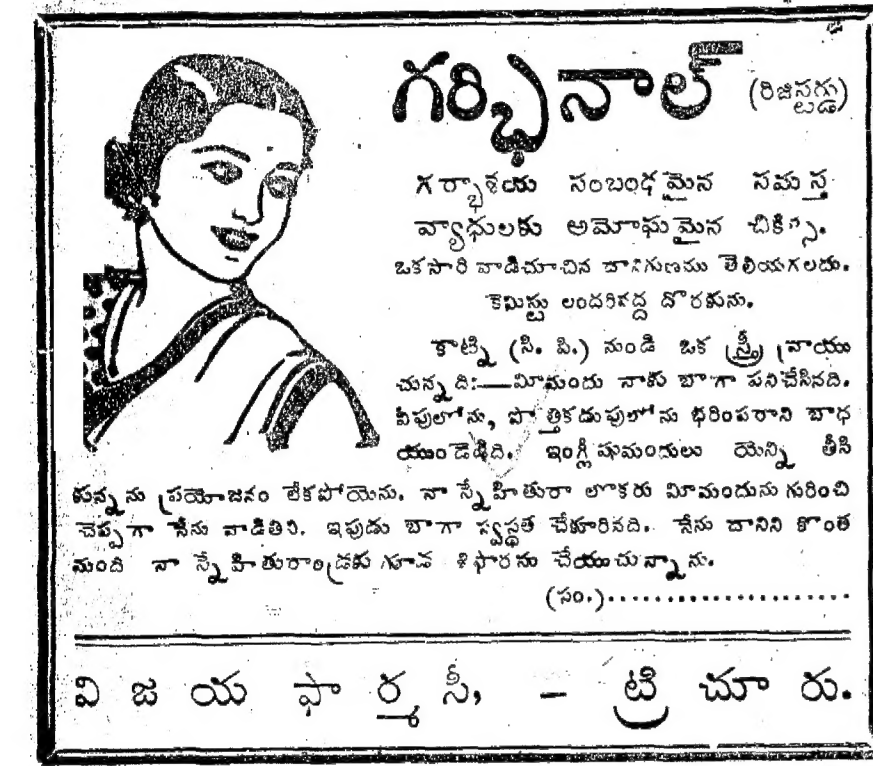 గర్భినాల్ (రిజిస్టర్డు)
గర్భాశయ సంబంధమైన సమస్త
వ్యాధులకు అమోఘమైన చికిత్స.
ఒకసారి వాడిచూచిన దానిగుణము తెలియగలదు.
కెమిస్టు లందరివద్ద దొరకును.
కాట్ని (సి. పి.) నుండి ఒక స్త్రీ వ్రాయు
చున్నది:—మీమందు నాకు బాగా పనిచేసినది.
వీపులోను, పొత్తికడుపులోను భరింపరాని బాధ
యుండెడిది. ఇంగ్లీషుమందులు యెన్ని తీసి
కున్నను ప్రయోజనం లేకపోయెను. నా స్నేహితురా లొకరు మీమందును గురించి
చెప్పగా నేను వాడితిని. ఇపుడు బాగా స్వస్థత చేకూరినది. నేను దానిని కొంత
మంది నా స్నేహితురాండ్రకు గూడ శిఫారసు చేయుచున్నాను.
(సం.)......................
విజయ ఫార్మసీ, — ట్రిచూరు.